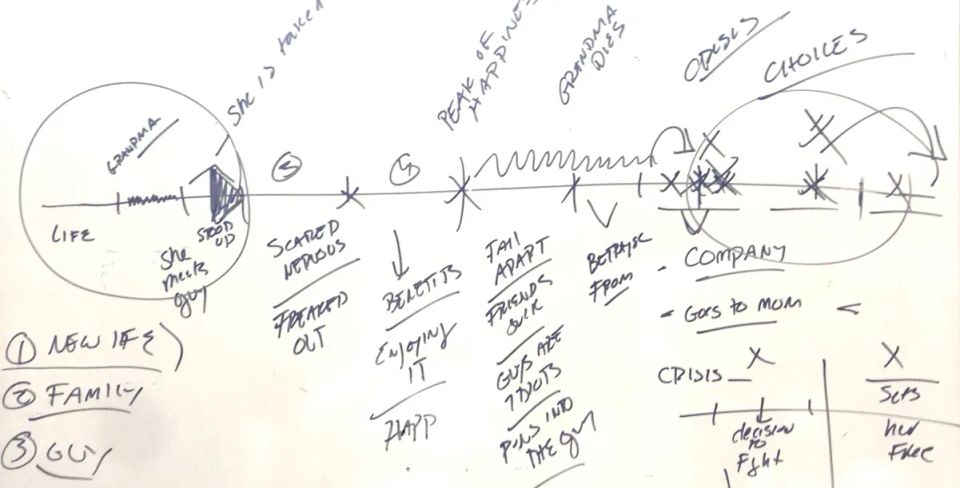 She is taken
PEAK OF
HAPPINESS
GRANDMA
DIES
CRISIS
CHOICES
GRANDMA
LIFE
STOOD
UP
She
meets
guy
SCARED
NERVOUS
FREAKED
OUT
BENEFITS
ENJOYING
IT
HAPP
FALL
APART
FRIENDS
SUCK
GUYS ARE
IDIOTS
RUNS INTO
THE GUY
FROM
COMPANY
GOES TO MOM
CRISIS
decision
to
Fight
SETS
her
Free
① NEW LIFE
② FAMILY
③ GUY